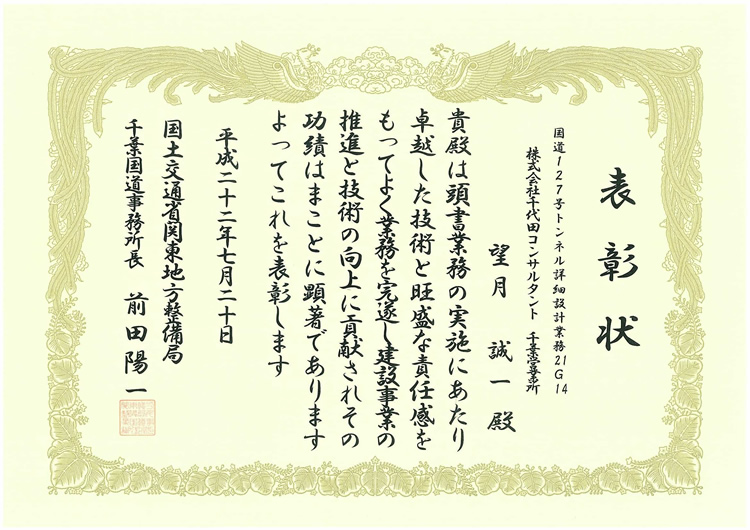 表彰状
国道127号トンネル詳細設計業務21G14
株式会社千代田コンサルタント 千葉営業所
望月 誠一 殿
貴殿は頭書業務の実施にあたり
卓越した技術と旺盛な責任感を
もってよく業務を完遂し建設事業の
推進と技術の向上に貢献されその
功績はまことに顕著であります
よってこれを表彰します
平成二十二年七月二十日
国土交通省関東地方整備局
千葉国道事務所長 前田陽一